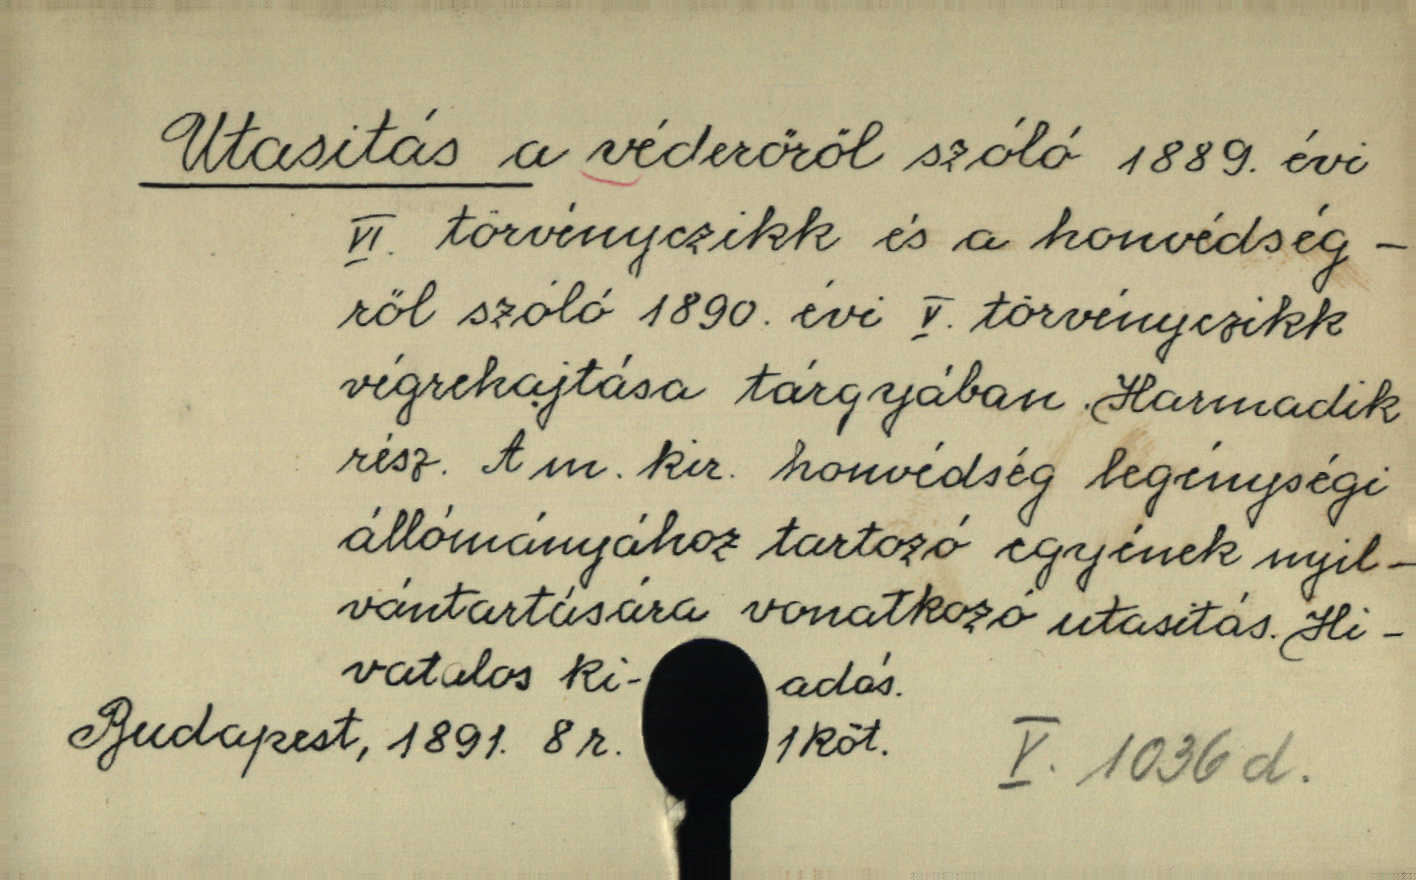 Utasitás a véderőről szóló 1889. évi
VI. törvényczikk és a honvédség-
ről szóló 1890. évi V. törvényczikk
végrehajtása tárgyában. Harmadik
rész. A m. kir. honvédség legénységi
állományához tartozó egyének nyil-
vántartására vonatkozó utasitás. Hi-
vatalos ki- adás.
Budapest, 1891. 8 r. 1 köt.
V. 1036 d.